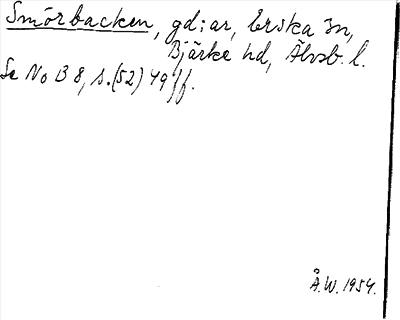 Smörbacken, gd:ar, Erska sn,
Bjärke hd, Älvsb. l.
Se No B 8, s. (52) 49 ff.
Å.W. 1954.